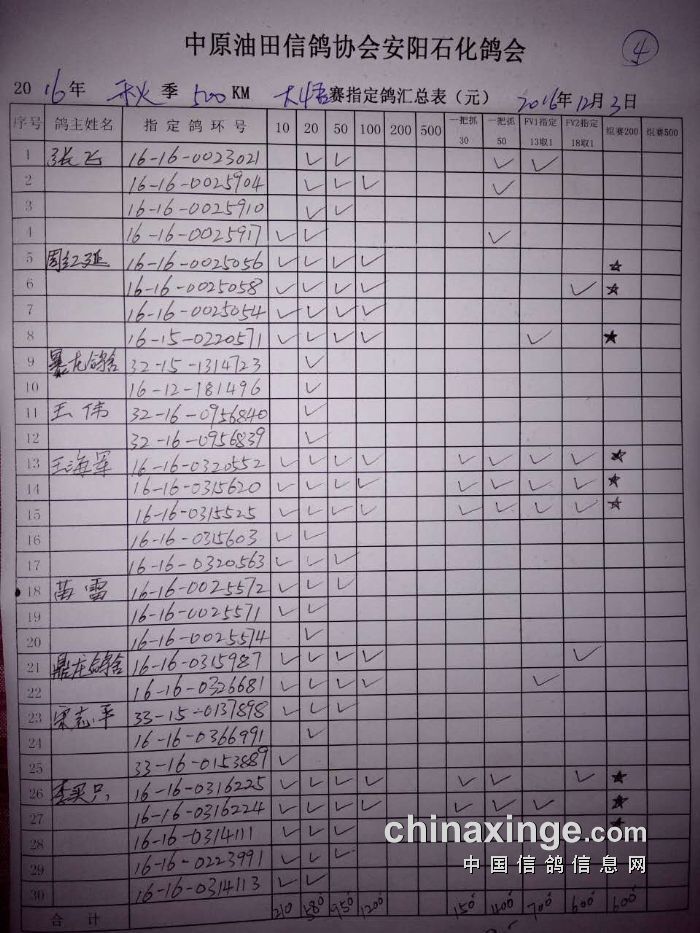 中原油田信鸽协会安阳石化鸽会
④
2016年 秋季 500KM 大悟赛指定鸽汇总表（元） 2016年12月3日
序号 鸽主姓名 指定鸽环号 10 20 50 100 200 500 一把抓30 一把抓50 FV1指定13取1 FV2指定18取1 组赛200 组赛500
1 张飞 16-16-0023021 ✓ ✓ ✓ ✓
2 16-16-0025904 ✓ ✓ ✓ ✓
3 16-16-0025910 ✓ ✓
4 16-16-0025917 ✓ ✓ ✓
5 周红延 16-16-0025056 ✓ ✓ ✓ ✓ ★
6 16-16-0025058 ✓ ✓ ✓ ✓ ✓ ★
7 16-16-0025054 ✓ ✓ ✓ ✓
8 16-15-0220571 ✓ ✓ ✓ ✓ ✓ ★
9 暴龙鸽舍 32-15-1314723 ✓
10 16-12-181496 ✓
11 王伟 32-16-0956840 ✓
12 32-16-0956839 ✓
13 王海军 16-16-0320552 ✓ ✓ ✓ ✓ ✓ ✓ ✓ ✓ ★
14 16-16-0315620 ✓ ✓ ✓ ✓ ✓ ✓ ✓ ✓ ★
15 16-16-0315525 ✓ ✓ ✓ ✓ ✓ ✓ ✓ ✓ ★
16 16-16-0315603 ✓ ✓
17 16-16-0320563 ✓ ✓ ✓
18 苗雷 16-16-0025572 ✓ ✓ ✓
19 16-16-0025571 ✓ ✓
20 16-16-0025574 ✓
21 鼎龙鸽舍 16-16-0315987 ✓ ✓ ✓ ✓ ✓
22 16-16-0326681 ✓ ✓ ✓ ✓ ✓
23 宋志平 33-15-0137898 ✓ ✓ ✓
24 16-16-0366991 ✓
25 33-16-0153889 ✓
26 16-16-0316225 ✓ ✓ ✓ ✓ ✓ ✓ ✓ ★
27 16-16-0316224 ✓ ✓ ✓ ✓ ✓ ✓ ✓ ★
28 16-16-0314111 ✓ ✓ ✓ ★
29 16-16-0223991 ✓ ✓ ✓
30 16-16-0314113 ✓ ✓
合计 210 580 950 1200 150 400 700 600 600
chinaxinge.com
中国信鸽信息网